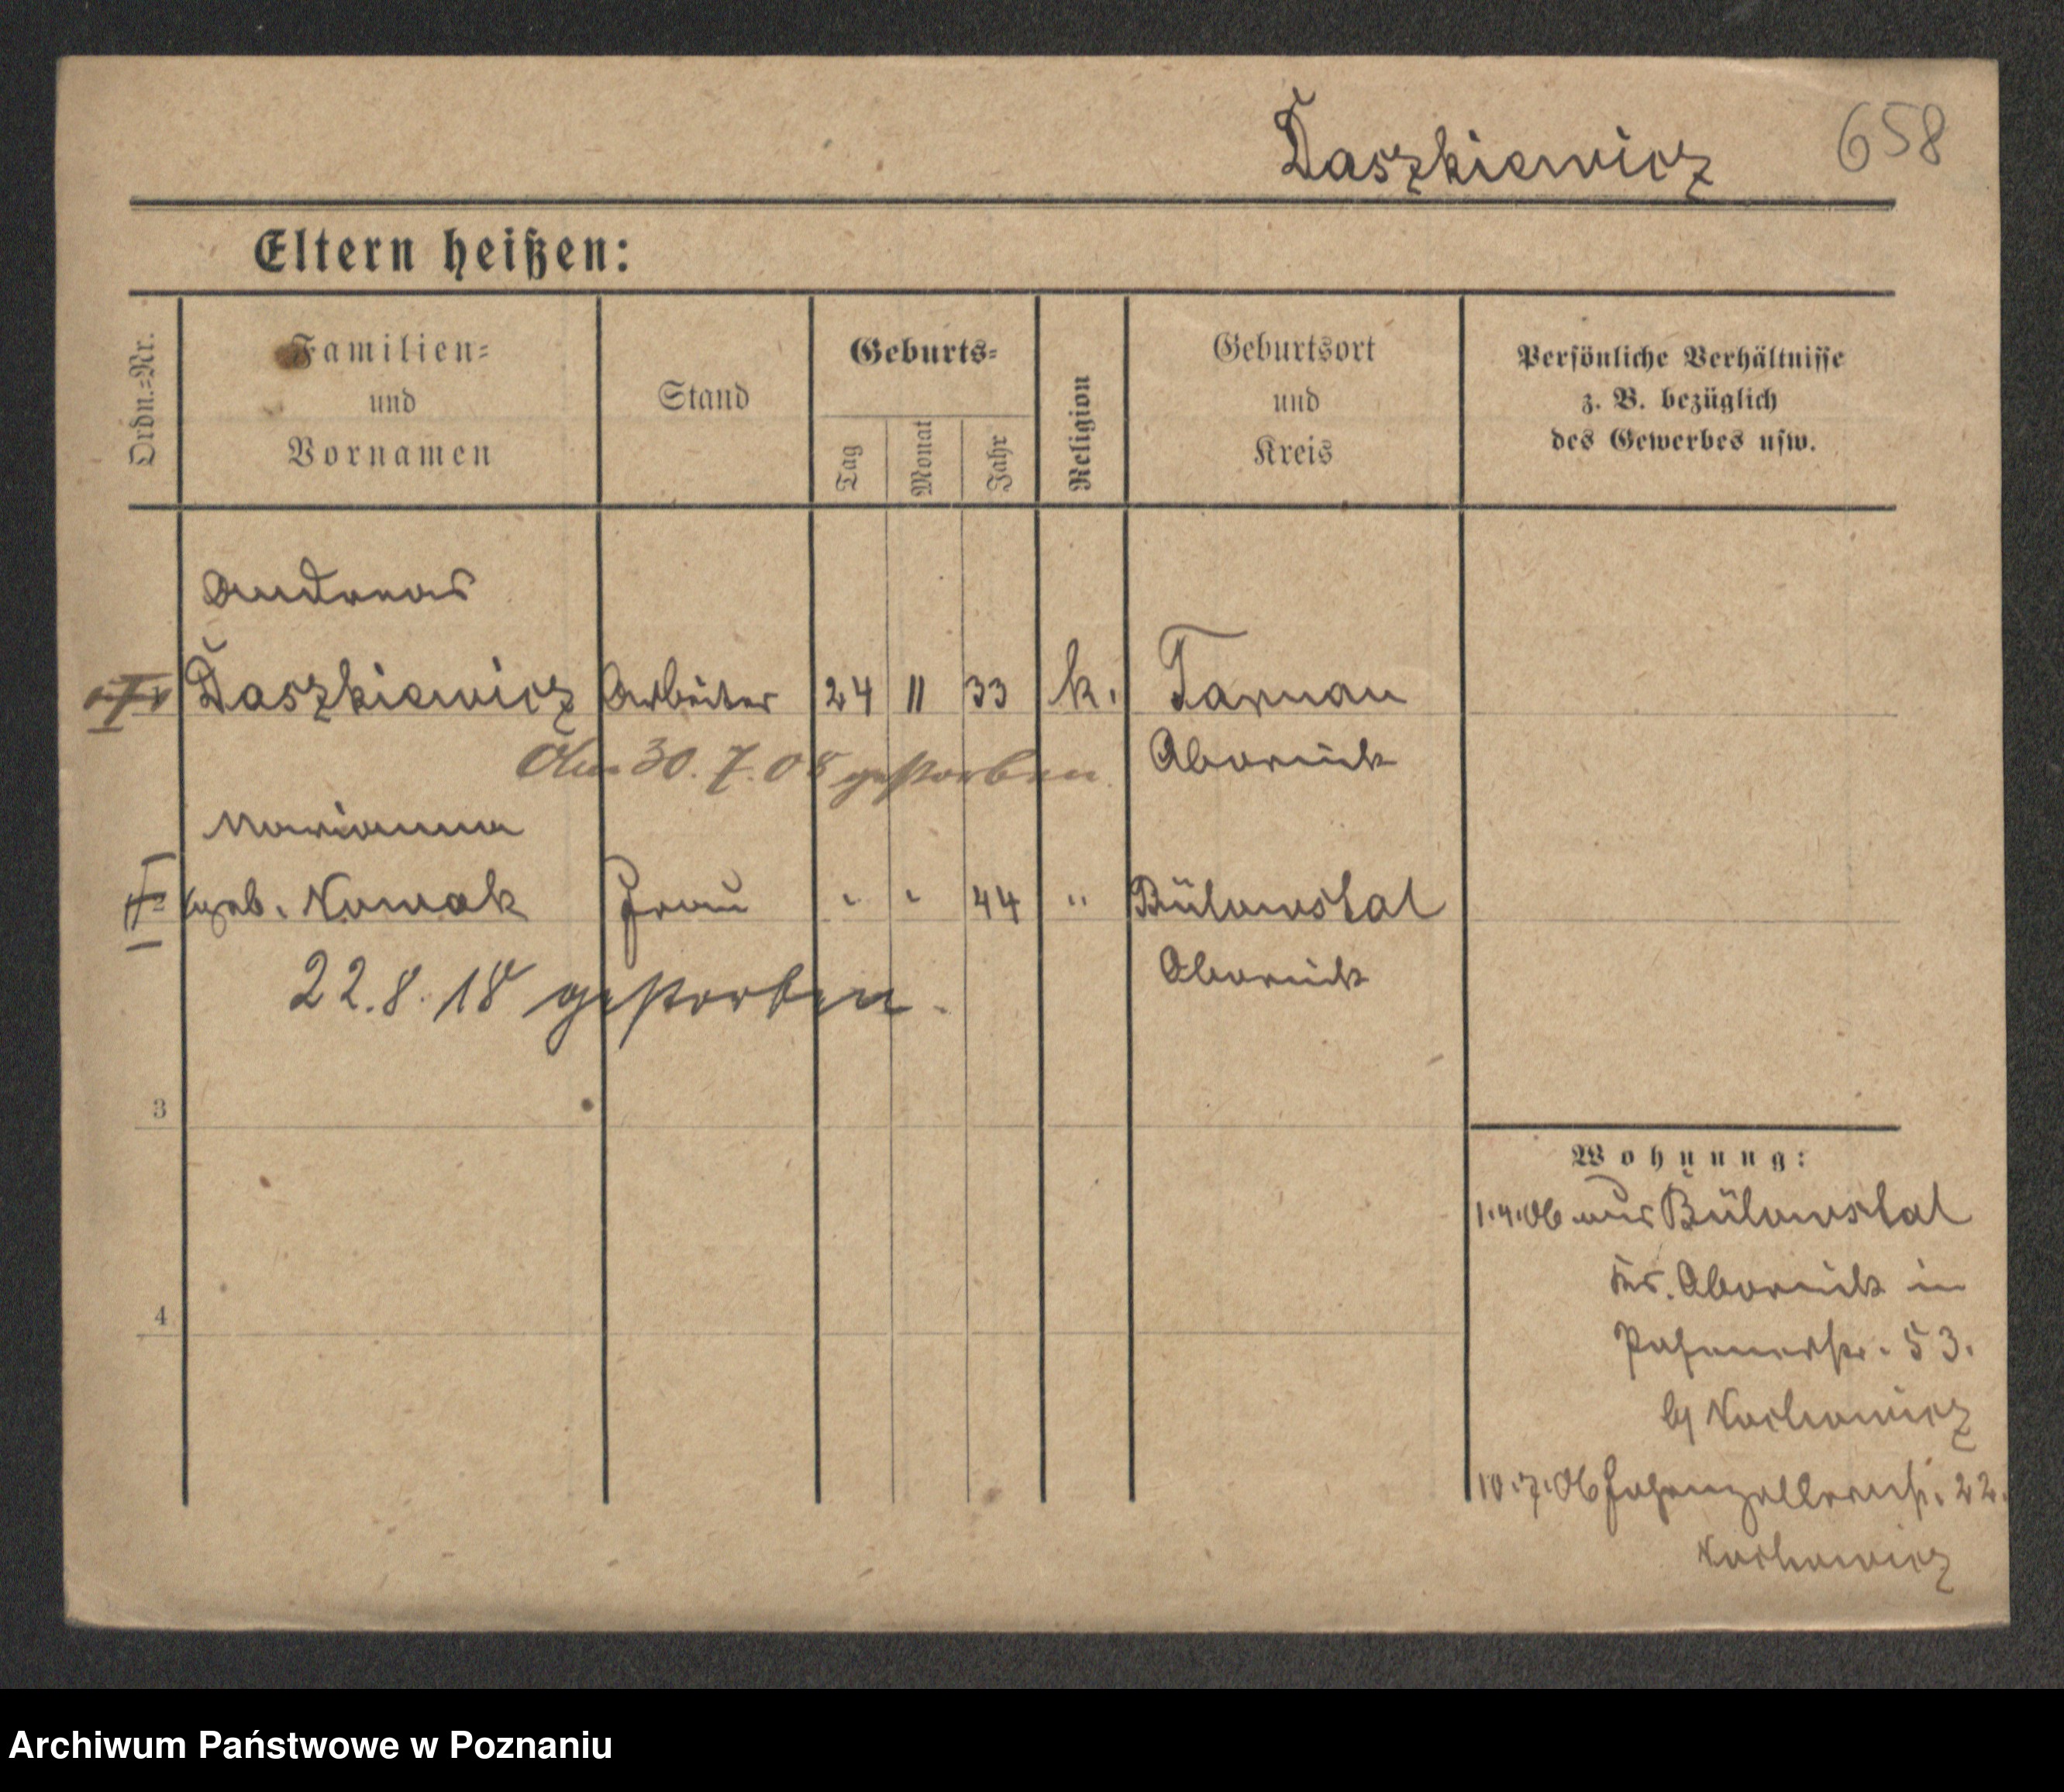 Daszkiewicz 658
Eltern heißen:
Ordn.=Nr.
Familien=
und
Vornamen
Stand
Geburts=
Tag
Monat
Jahr
Religion
Geburtsort
und
Kreis
Persönliche Verhältnisse
z. B. bezüglich
des Gewerbes usw.
Andreas
Daszkiewicz Arbeiter 24 11 33 k. Tarnau
Am 30. 7. 08 gestorben Obornick
Marianna
geb. Nowak Frau " " 44 " Bülowstal
22. 8. 18 gestorben. Obornick
3
4
Wohnung:
1.4.06 aus Bülowstal
Krs. Obornick in
Posenerstr. 53.
10.7.06 Hohenzollernstr. 22.
Archiwum Państwowe w Poznaniu